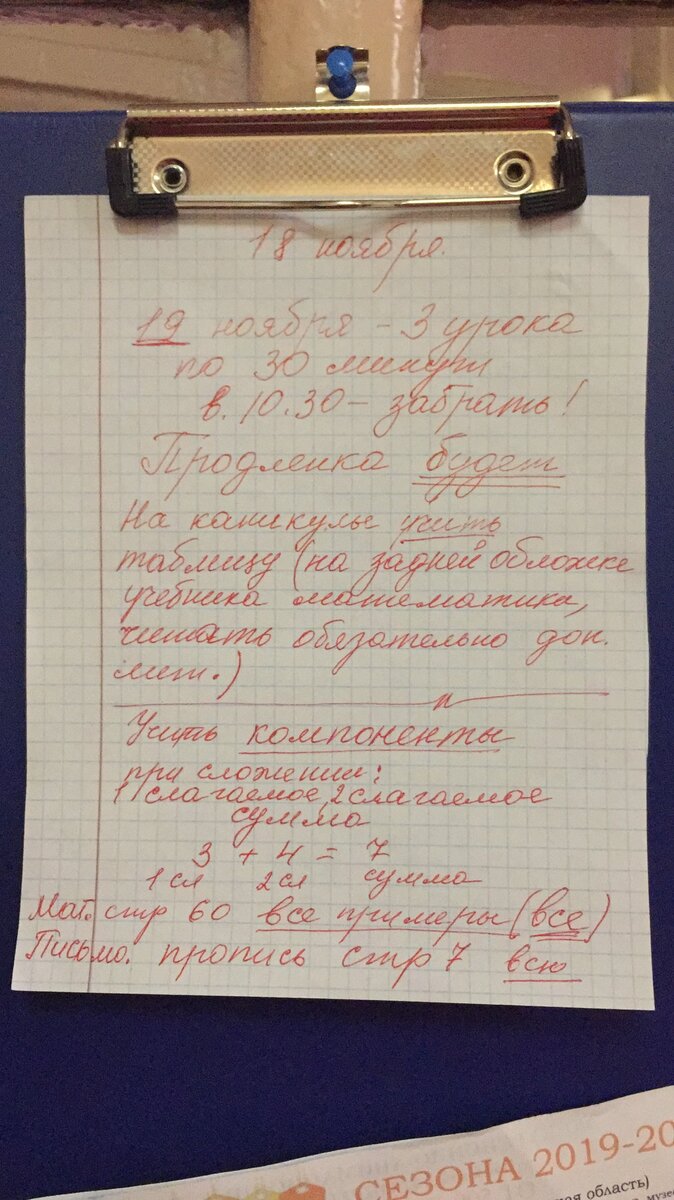 18 ноября.
19 ноября - 3 урока
по 30 минут
в. 10.30 - забрать!
Продленка будет
На каникулы учить
таблицу (на задней обложке
учебника математика,
читать обязательно доп.
лит.)
Учить компоненты
при сложении:
1 слагаемое, 2 слагаемое
сумма
3 + 4 = 7
1 сл 2 сл сумма
Мат. стр 60 все примеры (все)
Письмо. пропись стр 7 всю
СЕЗОНА 2019-20
ая область)
музе